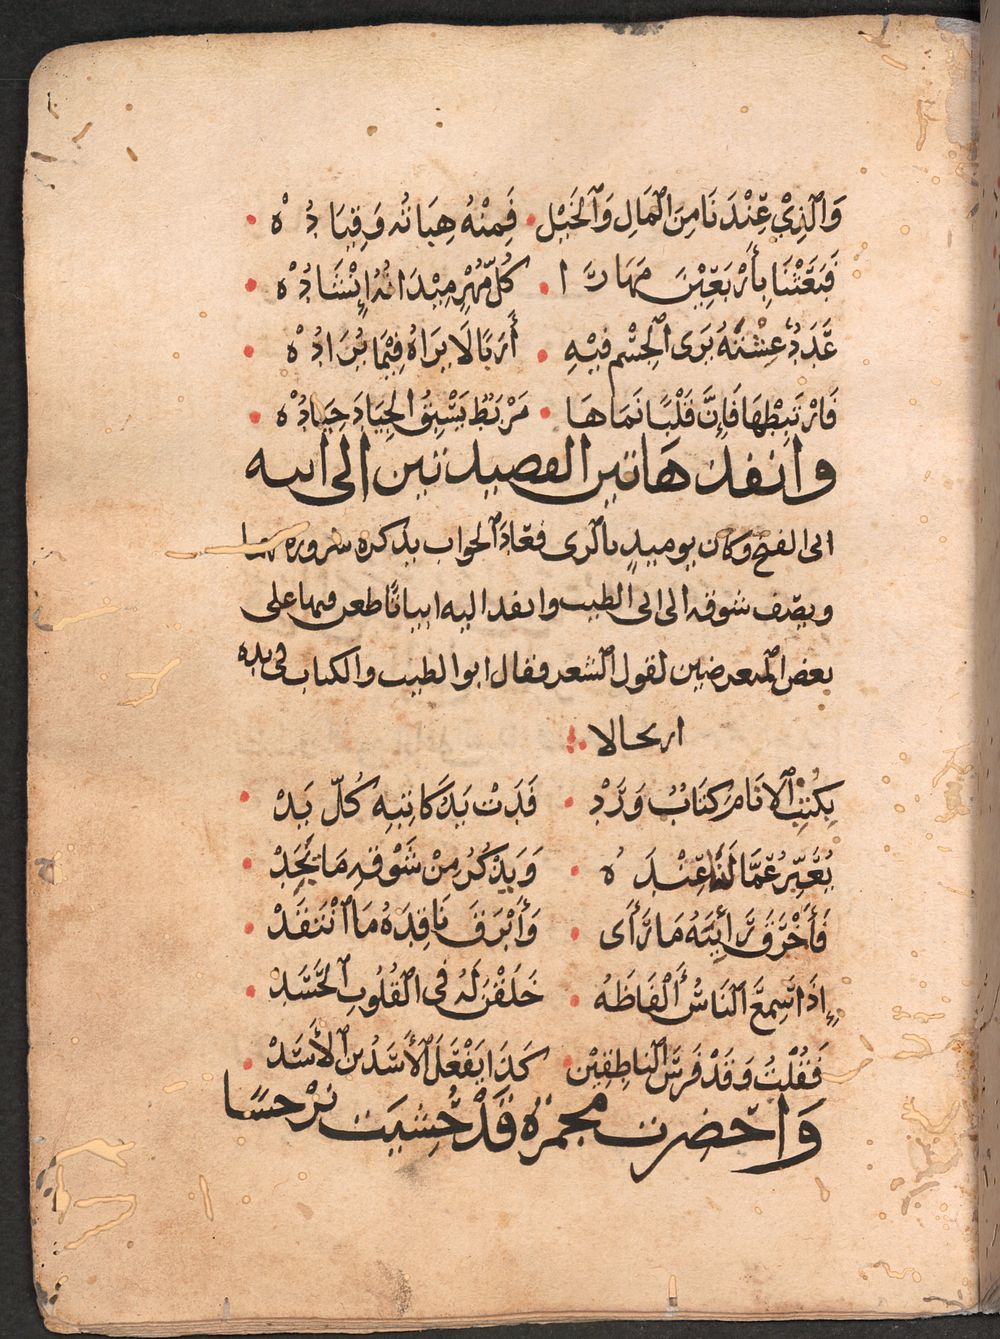 وَالَّذِيْ عِنْدَنَا مِنَ الْمَالِ وَالْخَيْلِ . فَمِنْهُ هِبَاتُهُ وَقِيَادُهْ
فَبَعَثْنَا بِأَرْبَعِيْنَ مَهَارًا . كُلُّ مُهْرٍ مِيْدَانُهُ إِنْشَادُهْ
عَدَدٌ عِشْتَهُ يَرَى الْجِسْمُ فِيْهِ . أَرَبًا لَا يَرَاهُ فِيْمَا يُزَادُهْ
فَارْتَبِطْهَا فَإِنَّ قَلْبًا نَمَاهَا . مَرْبَطٌ يَسْبِقُ الْجِيَادَ جِيَادُهْ
وانفذ هاتين القصيدتين الى ابيه
الى الفتح وكان يوميذ بالرى فعاد الجواب يذكره سروره بهما
ويصف شوقه الى ابى الطيب وانفذ اليه ابياتا طعن فيها على
بعض المتعرضين لقول الشعر فقال ابو الطيب والكتاب فى يده
ارتجالا
بِكُتْبِ الْأَنَامِ كِتَابٌ وَرَدْ . فَدَتْ يَدَ كَاتِبِهِ كُلُّ يَدْ
يُعَبِّرُ عَمَّا لَنَا عِنْدَهُ . وَيَذْكُرُ مِنْ شَوْقِهِ مَا نَجِدْ
فَأَخْرَقَ رَأْيَهُ مَا رَأَى . وَأَبْرَقَ نَاقِدَهُ مَا انْتَقَدْ
إِذَا سَمِعَ النَّاسُ أَلْفَاظَهُ . خَلَقْنَ لَهُ فِى الْقُلُوبِ الْحَسَدْ
فَقُلْتُ وَقَدْ فَرَسَ النَّاطِقِيْنَ . كَذَا يَفْعَلُ الْأَسَدُ بْنُ الْأَسَدْ
وَاحضرت مجمرة قَدْ حُشِيَت نرجسا